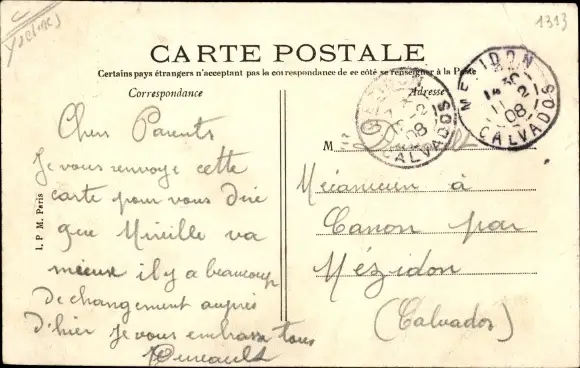 Yvelines
1313
CARTE POSTALE
Certains pays étrangers n'acceptant pas la correspondance de ce côté se renseigner à la Poste
Correspondance
Adresse
MEZIDON
11-2
08
CALVADOS
11-2
08
CALVADOS
Chers Parents
Je vous renvoye cette
carte pour vous dire
que Mireille va
mieux il y a beaucoup
de changement auprès
d'hier Je vous embrasse tous
M
Mécanicien à
Canon par
Mézidon
(Calvados)
I. P. M. Paris